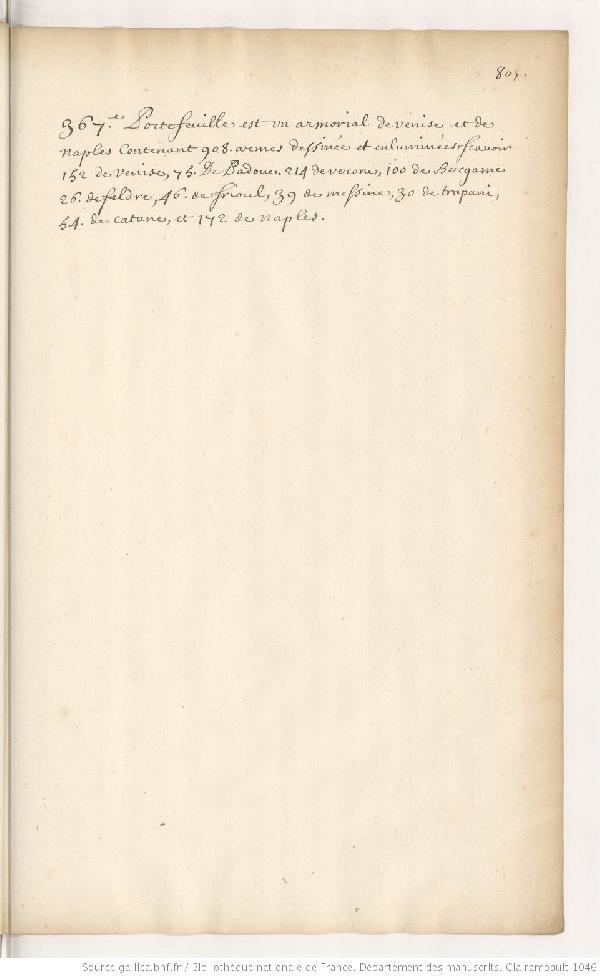 805.
367.e Portefeuille est un armorial de venise et de
naples Contenant 908. armes dessinée et enluminées scavoir
152 de venise, 75. De Padoue. 214 de verone, 100 de Bergame
26. de feldre, 46. de frioul, 39 de messine, 30 de trapani,
54. de catane, et 172 de naples.
Source gallica.bnf.fr / Bibliothèque nationale de France. Département des manuscrits. Clairambault 1046